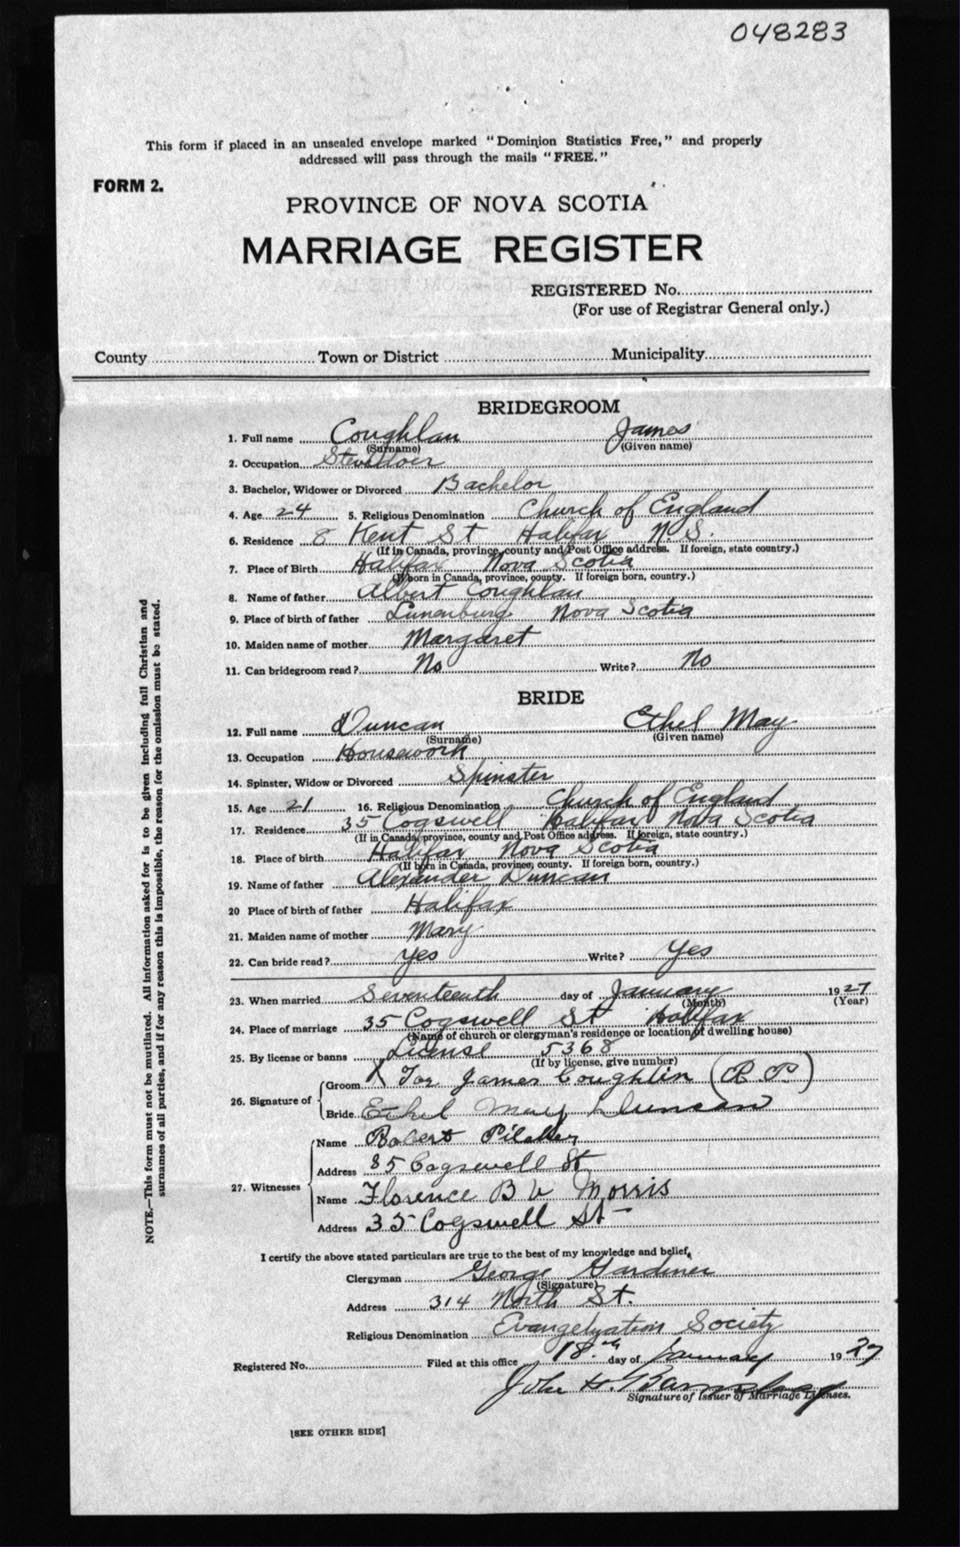 048283
This form if placed in an unsealed envelope marked "Dominion Statistics Free," and properly
addressed will pass through the mails "FREE."
FORM 2.
PROVINCE OF NOVA SCOTIA
MARRIAGE REGISTER
REGISTERED No.
(For use of Registrar General only.)
County Town or District Municipality
BRIDEGROOM
1. Full name Coughlan James
(Surname) (Given name)
2. Occupation
3. Bachelor, Widower or Divorced Bachelor
4. Age 24 5. Religious Denomination Church of England
6. Residence 8 Kent St Halifax N.S.
(If in Canada, province, county and Post Office address. If foreign, state country.)
7. Place of Birth Halifax Nova Scotia
(If born in Canada, province, county. If foreign born, country.)
8. Name of father Albert Coughlan
9. Place of birth of father Lunenburg Nova Scotia
10. Maiden name of mother Margaret
11. Can bridegroom read? No Write? No
BRIDE
12. Full name Duncan Ethel May
(Surname) (Given name)
13. Occupation Housework
14. Spinster, Widow or Divorced Spinster
15. Age 21 16. Religious Denomination Church of England
17. Residence 35 Cogswell Halifax Nova Scotia
(If in Canada, province, county and Post Office address. If foreign, state country.)
18. Place of birth Halifax Nova Scotia
(If born in Canada, province, county. If foreign born, country.)
19. Name of father Alexander Duncan
20 Place of birth of father Halifax
21. Maiden name of mother Mary
22. Can bride read? Yes Write? Yes
23. When married Seventeenth day of January 1927
(Month) (Year)
24. Place of marriage 35 Cogswell St Halifax
(Name of church or clergyman's residence or location of dwelling house)
25. By license or banns License 5368
(If by license, give number)
26. Signature of
Groom X For James Coughlin (R.P.)
Bride Ethel May Duncan
27. Witnesses
Name Robert
Address 35 Cogswell St
Name Florence B Morris
Address 35 Cogswell St
I certify the above stated particulars are true to the best of my knowledge and belief,
Clergyman George Gardiner
(Signature)
Address 314 North St.
Religious Denomination Society
Registered No. Filed at this office 18th day of January 1927
John H.
Signature of Issuer of Marriage Licenses.
[SEE OTHER SIDE]
NOTE.—This form must not be mutilated. All information asked for is to be given including full Christian and
surnames of all parties, and if for any reason this is impossible, the reason for the omission must be stated.